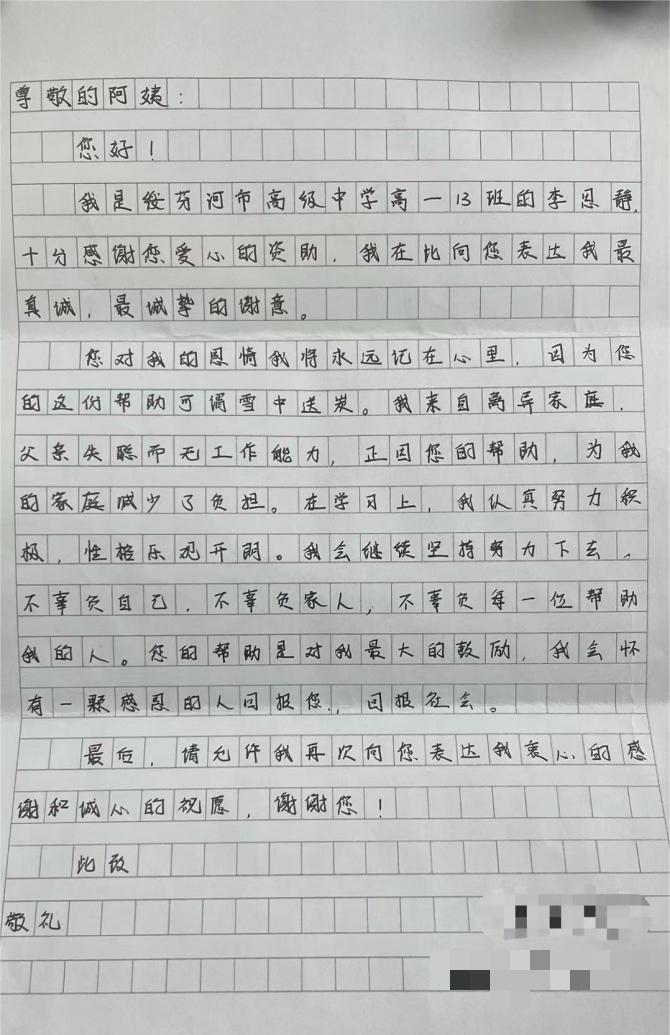 尊敬的阿姨:
您好!
我是绥芬河市高级中学高一13班的李恩静,
十分感谢您爱心的资助,我在此向您表达我最
真诚,最诚挚的谢意。
您对我的恩情我将永远记在心里,因为您
的这份帮助可谓雪中送炭。我来自离异家庭,
父亲失聪而无工作能力,正因您的帮助,为我
的家庭减少了负担。在学习上,我认真努力积
极,性格乐观开朗。我会继续坚持努力下去,
不辜负自己,不辜负家人,不辜负每一位帮助
我的人。您的帮助是对我最大的鼓励,我会怀
有一颗感恩的人回报您,回报社会。
最后,请允许我再次向您表达我衷心的感
谢和诚心的祝愿,谢谢您!
此致
敬礼